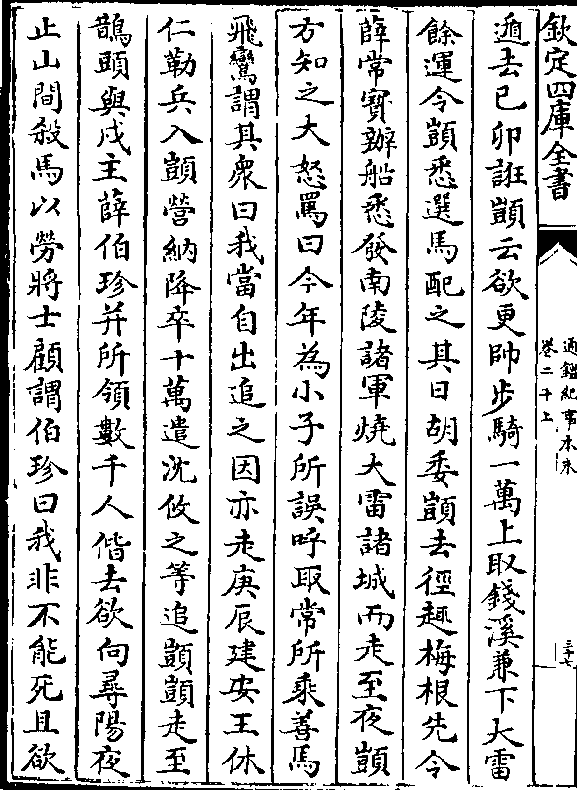 欽定四庫全書
通鑑紀事本末
卷二十上
三十七
遁去己卯誑顗云欲更帥步騎一萬上取錢溪兼下大雷
餘運令顗悉選馬配之其日胡委顗去徑趣梅根先令
薛常寶辦船悉發南陵諸軍燒大雷諸城而走至夜顗
方知之大怒罵曰今年為小子所誤呼取常所乘善馬
飛鸞謂其衆曰我當自出追之因亦走庚辰建安王休
仁勒兵入顗營納降卒十萬遣沈攸之等追顗顗走至
鵲頭與戍主薛伯珍并所領數千人偕去欲向尋陽夜
止山間殺馬以勞將士顧謂伯珍曰我非不能死且欲